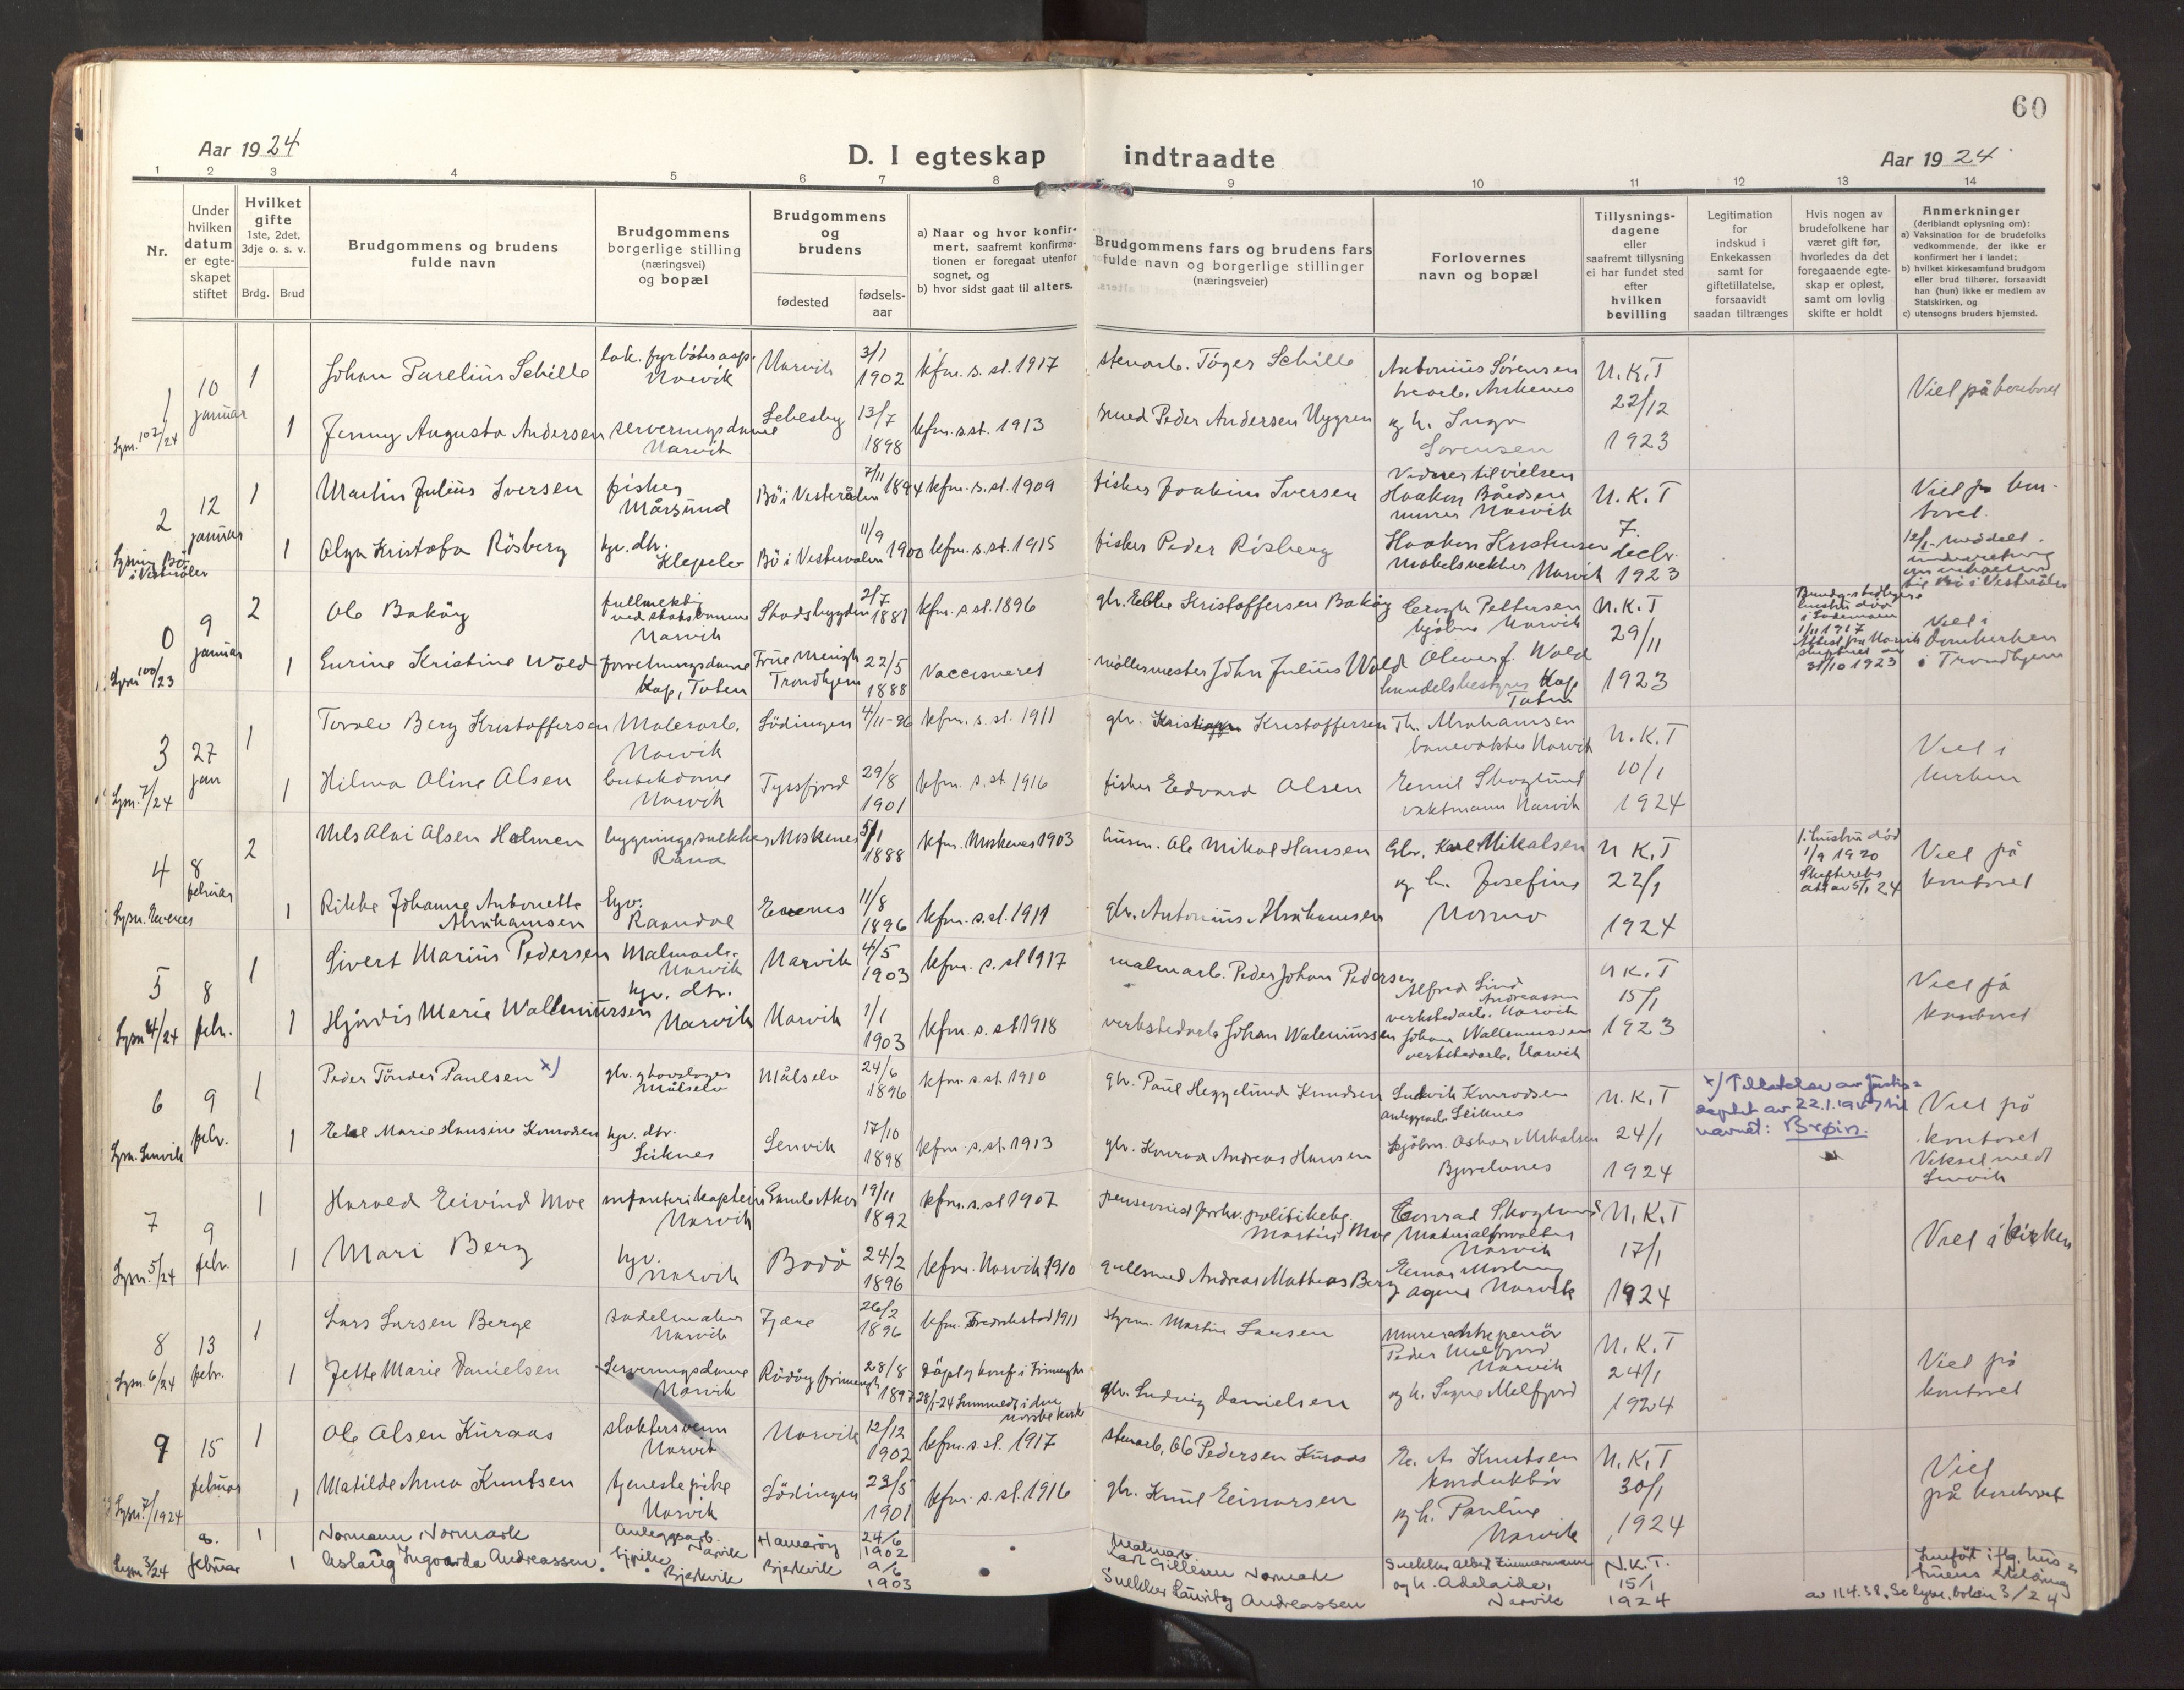 60
Aar 1924
D. I egteskap indtraadte
Aar 1924
1 2 3 4 5 6 7 8 9 10 11 12 13 14
Nr.
Under hvilken datum er egteskapet stiftet
Hvilket gifte 1ste, 2det, 3dje o. s. v.
Brdg. Brud
Brudgommens og brudens fulde navn
Brudgommens borgerlige stilling (næringsvei) og bopæl
Brudgommens og brudens
fødested
fødsels-aar
a) Naar og hvor konfirmert, saafremt konfirmationen er foregaat utenfor sognet, og
b) hvor sidst gaat til alters.
Brudgommens fars og brudens fars fulde navn og borgerlige stillinger (næringsveier)
Forlovernes navn og bopæl
Tillysningsdagene eller saafremt tillysning ei har fundet sted efter hvilken bevilling
Legitimation for indskud i Enkekassen samt for giftetillatelse, forsaavidt saadan tiltrænges
Hvis nogen av brudefolkene har været gift før, hvorledes da det foregaaende egteskap er opløst, samt om lovlig skifte er holdt
Anmerkninger (deriblandt oplysning om):
a) Vaksination for de brudefolks vedkommende, der ikke er konfirmert her i landet;
b) hvilket kirkesamfund brudgom eller brud tilhører, forsaavidt han (hun) ikke er medlem av Statskirken, og
c) utensogns bruders hjemsted.
1 10 januar 1 Johan Parelius Schille lok. fyrbøterasp. Narvik Narvik 3/1 1902 kfm. s. st. 1917 stenarb. Töger Schille Antonius Sørensen Ankenes N.K.T 22/12 1923 Viel på kontoret
Lysn. 102/24 1 Jenny Augusta Andersen serveringsdame Narvik Lebesby 13/7 1898 kfm. s. st. 1913 smed Peder Andersen Nygren og h. Inga Sørensen
2 12 januar 1 Martin Julius Iversen fisker Mårsund Bö i Vesterålen 7/11 1894 kfm. s. st. 1909 fisker Joakim Iversen Vidner til vielsen Haakon Bårdsen murer Narvik N.K.T 7. decbr. 1923 Viel på kontoret.
Lysning Bö i Vesterålen 1 Olga Kristofa Risberg hjv. dtr. Bö i Vesterålen 11/9 1900 kfm. s. st. 1915 fisker Peder Risberg Haakon Kristensen Narvik
0 9 januar 2 Ole Baköy fullmekt. ved statsbanene Narvik Stadsbygden 2/7 1881 kfm. s. st. 1896 gbr. Ebbe Kristoffersen Bakøy Pettersen Narvik N.K.T 29/11 1923 Viel i Domkirken i Trondhjem
Attest fra Narvik 31/10 1923
Lysn 100/23 1 Eurine Kristine Wold forretningsdame Kap, Toten Frue menigh Trondhjem 22/5 1888 Vaccineret möllermester John Julius Wold Oliver J. Wold handelsbestyrer Kap Toten
3 27 jan 1 Torolv Berg Kristoffersen Malerarb. Narvik Lödingen 4/11-96 kfm. s. st. 1911 gbr. Kristoffersen Th. Abrahamsen banevokter Narvik N.K.T 10/1 1924 Viel i kirken
Lysn. 7/24 1 Hilma Oline Olsen butikdame Narvik Tysfjord 29/8 1901 kfm. s. st. 1916 fisker Edvard Olsen Emil Skoglund vaktmann Narvik
4 8 februar 2 Nils Olai Olsen Holmen bygningssnekker Rana Moskenes 5/1 1888 kfm. Moskenes 1903 husm. Ole Mikal Hansen Gbr. Karl Mikalsen N.K.T 22/1 1924 1. hustru död 1/9 1920 Skifteretts att av 5/1 24 Viel på kontoret
Lysn. Evenes 1 Rikke Johanne Antonette Abrahamsen hjv. Raandal Evenes 11/8 1896 kfm. s. st. 1911 gbr. Antonius Abrahamsen og h. Josefine Normo
5 8 febr. 1 Sivert Marius Pedersen Malmarb. Narvik Narvik 4/5 1903 kfm. s. st 1917 malmarb. Peder Johan Pedersen Alfred Lind Andreassen verkstedarb. Narvik N.K.T 15/1 1923 Viel på kontoret
Lysn 4/24 1 Hjördis Marie Wallemürsen hjv. dtr. Narvik Narvik 1/1 1903 kfm. s. st 1918 verkstedarb Johan Walemürssen Johan Wallemürssen verkstedarb. Narvik
6 9 febr. 1 Peder Tönder Paulsen x) gbr. Målselv Målselv 24/6 1896 kfm. s. st. 1910 gbr. Paul Heggelund Knudsen Ludvik Konradsen Leiknes N.K.T 24/1 1924 x) Tillatelse av Justisdeptet av 22.1.1947 til navnet: Brøin. Viel på kontoret Veksel med Lenvik
Lysn. Lenvik 1 Marie Hansine Konradsen hjv. dtr. Leiknes Lenvik 17/10 1898 kfm. s. st. 1913 gbr. Konrad Andreas Hansen Oskar Mikalsen Bjorelvnes
7 9 febr. 1 Harald Eivind Moe infanterikaptein Narvik Gamle Aker 19/11 1892 kfm. s. st 1907 pensioneret politibetj. Martius Moe Conrad Skoglund Materialforvalter Narvik N.K.T 17/1 1924 Viel i kirken
Lysn. 5/24 1 Mari Berg hjv. Narvik Bodö 24/2 1896 kfm. Narvik 1910 gullsmed Andreas Mathias Berg Einar Mosling agent Narvik
8 13 febr. 1 Lars Larsen Berge sadelmaker Narvik Fjære 26/2 1896 kfm. Fredrikstad 1911 styrm. Martin Larsen Murerentrepenör Peder Melfjord Narvik N.K.T 24/1 1924 Viel på kontoret
Lysn. 6/24 1 Jette Marie Danielsen Serveringsdame Narvik Rödöy frimenigh 28/8 1897 döpt og konf i frimenigh 28/1-24 Innmeldt i den norske kirke gbr. Ludvig Danielsen og h. Signe Melfjord
9 15 februar 1 Ole Olsen Kuraas slaktersvenn Narvik Narvik 12/12 1902 kfm. s. st. 1917 stenarb, Ole Pedersen Kuraas E. A. Knutsen konduktör N.K.T 30/1 1924 Viel på kontoret
Lysn. 7/1924 1 Matilde Anna Knutsen tjenestepike Narvik Lödingen 23/5 1901 kfm. s. st. 1916 gbr. Knut Einarsen og h. Pauline Narvik
8. februar 1 Normann Normark Anleggsarb. Narvik Hamaröy 24/6 1902 Malmarb. Karl Gillesen Normark Snekker Albert Zimmermann N.K.T. 15/1 1924 Innfört iflg. hustruens erklæring
Lysn 3/24 1 Aslaug Ingvarda Andreassen Bjerkvik Bjerkvik 9/6 1903 Snekker Lauritz Andreassen og h. Adelaide, Narvik av 11.4.38. Se lysn. boken 3/24